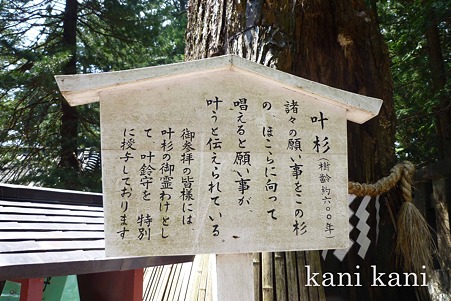 叶杉(樹齢約六〇〇年)
諸々の願い事をこの杉
の、ほこらに向って
唱えると願い事が
叶うと伝えられている
御参拝の皆様には
叶杉の御霊わけとし
て、叶鈴守を特別
に授与しております
kani kani